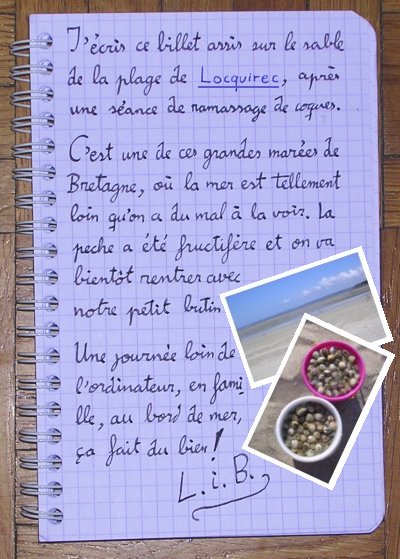 J'écris ce billet assis sur le sable
de la plage de Locquirec, après
une séance de ramassage de coques.
C'est une de ces grandes marées de
Bretagne, où la mer est tellement
loin qu'on a du mal à la voir. La
peche a été fructifère et on va
bientôt rentrer avec
notre petit butin
Une journée loin de
l'ordinateur, en fami
lle, au bord de mer,
ça fait du bien !
L.i.B.